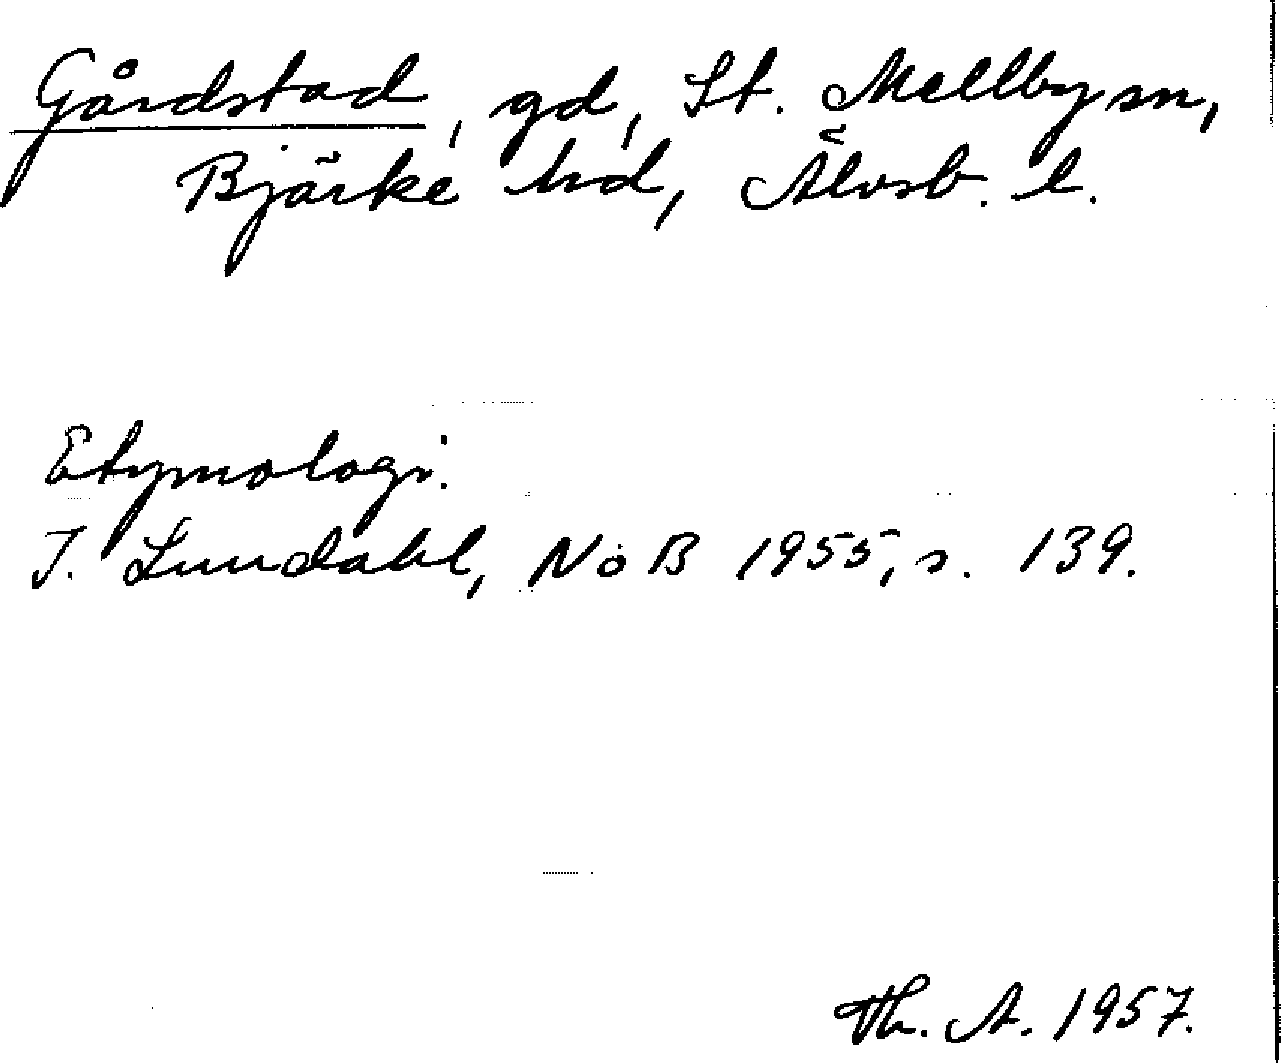 Gårdstad, gd, St. Mellby sn,
Bjärke hd, Älvsb. l.
Etymologi.
I. Lundahl, NoB 1955, s. 139.
Th. A. 1957.